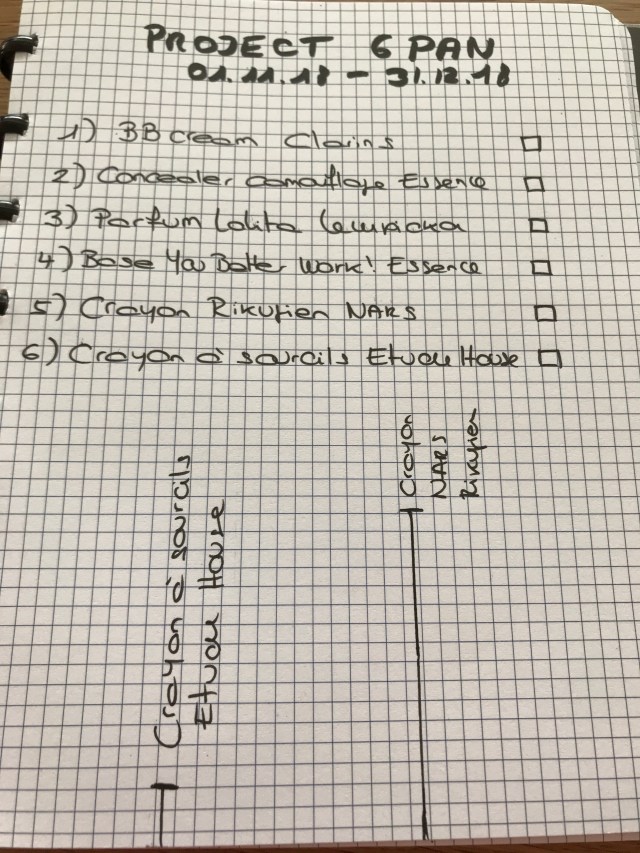 PROJECT 6 PAN
01.11.18 - 31.12.18
1) BB cream Clarins
2) Concealer camouflage Essence
3) Parfum Lolita Lempicka
4) Base You Better Work! Essence
5) Crayon Rikugien NARS
6) Crayon à sourcils Etude House
Crayon à sourcils
Etude House
Crayon
NARS
Rikugien